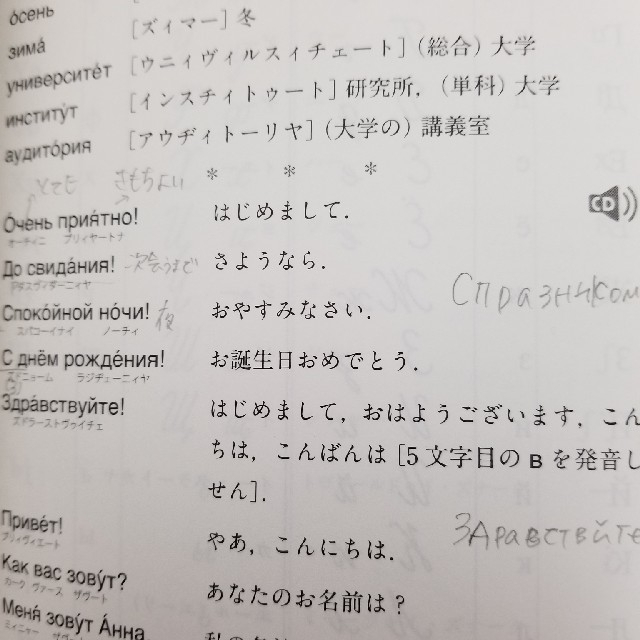 о́сень
зима́ [ズィマー] 冬
университе́т [ウニィヴィルスィチェート] (総合) 大学
институ́т [インスチィトゥート] 研究所. (単科) 大学
аудито́рия [アウヂィトーリヤ] (大学の) 講義室
とても きもちよい * * *
О́чень прия́тно! はじめまして. CD
オーチィニ プリィヤートナ
До свида́ния! 次会うまで さようなら.
Споко́йной но́чи! 夜 おやすみなさい. Спразником
スパコーイナイ ノーティ
С днём рожде́ния! お誕生日おめでとう.
ラジヂェーニィヤ
Здра́вствуйте! はじめまして, おはようございます, こん
ズドラーストヴゥイチェ
ちは, こんばんは [5 文字目の в を発音し
せん].
Приве́т! やあ, こんにちは. ЗДравствйте
プリィヴィエート
Как вас зову́т? あなたのお名前は?
カーク ヴァース ザヴート
Меня́ зову́т А́нна
ミィニャー ザヴート